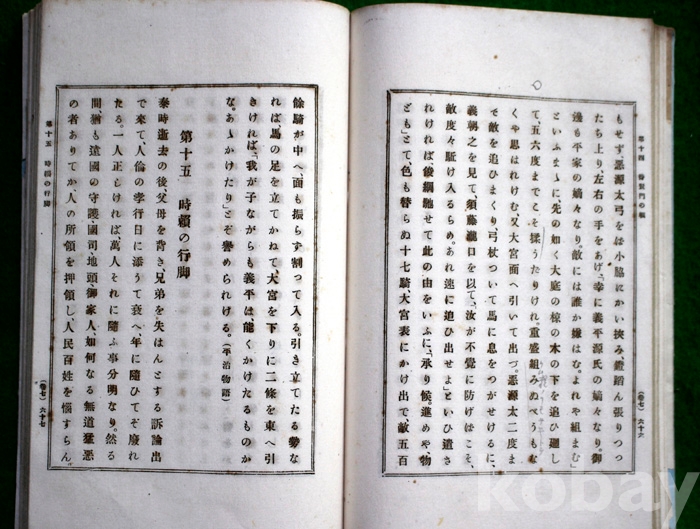 第十四 待賢門の軍
(卷七) 六十六
もせず、惡源太弓をば小脇にかい挾み、鐙踏ん張りつつ
たち上り、左右の手をあげ、「幸に義平源氏の嫡々なり、御
邊も平家の嫡々なり、敵には誰か嫌はむ。よれや組まむ」
といふまゝに、先の如く大庭の椋の木の下を追ひ廻し
て、五六度までこそ揉うたりけれ。重盛組みぬべうもな
くや思はれけむ、又大宮面へ引いて出づ。惡源太二度ま
で敵を追ひまくり、弓杖ついて馬に息をつがせけるに、
義朝之を見て、須藤瀧口を以て、「汝が不覺に防げばこそ
敵度々駈け入るらめ。あれ速に追ひ出せよ」といひ遣さ
れければ、俊綱馳せて此の由をいふに、「承り候。進めや、物
ども」とて、色も替らぬ十七騎、大宮表にかけ出で、敵五百
餘騎が中へ、面も振らず割つて入る。引き立てたる勢な
れば、馬の足を立てかねて、大宮を下りに二條を東へ引
きければ、「我が子ながらも義平は能くかけたるものか
な。あゝかけたり」とぞ譽められける。(平治物語)
第十五 時賴の行脚
泰時逝去の後、父母を背き、兄弟を失はんとする訴論出
で來て、人倫の孝行日に添うて衰へ、年に隨うてぞ廢れ
たる。一人正しければ萬人それに隨ふ事分明なり。然る
間、猶も遠國の守護、國司、地頭、御家人、如何なる無道猛惡
の者ありてか、人の所領を押領し、人民百姓を惱すらん。
第十五 時賴の行脚
(卷七) 六十七
kobay